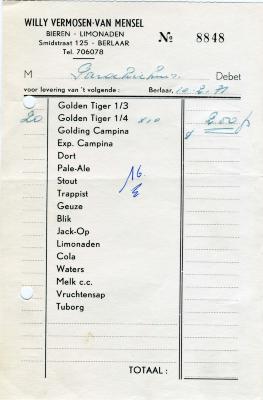 WILLY VERMOSEN-VAN MENSEL
BIEREN - LIMONADEN
Smidstraat 125 - BERLAAR
Tel. 706078
№ 8848
M Debet
voor levering van 't volgende : Berlaar,
Golden Tiger 1/3
20 Golden Tiger 1/4 x10 200
Golding Campina
Exp. Campina
Dort
Pale-Ale
Stout 16
Trappist
Geuze
Blik
Jack-Op
Limonaden
Cola
Waters
Melk c.c.
Vruchtensap
Tuborg
TOTAAL :